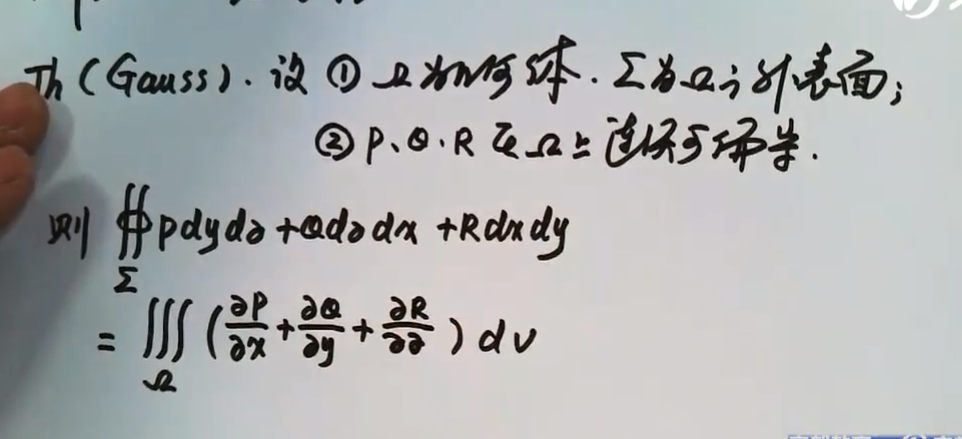 Th (Gauss). 设 ① Ω为几何体. Σ为Ω之外表面;
② P、Q、R在Ω上连续可偏导.
则 ∯_Σ Pdydz + Qdzdx + Rdxdy
= ∭_Ω (∂P/∂x + ∂Q/∂y + ∂R/∂z) dv